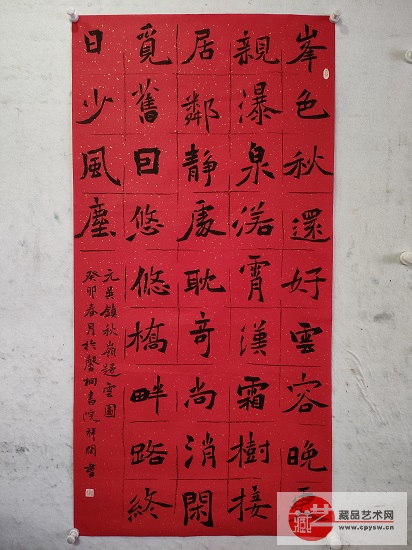 峯色秋還好雲容晚
親瀑泉落霄漢霜樹接
居鄰靜處耽奇尚消閑
覓舊曰悠悠橋畔路終
日少風塵
元吳鎮秋嶺歸雲圖
癸卯春月於桐書院書
藏艺
藏品艺术网
www.cpysw.cn